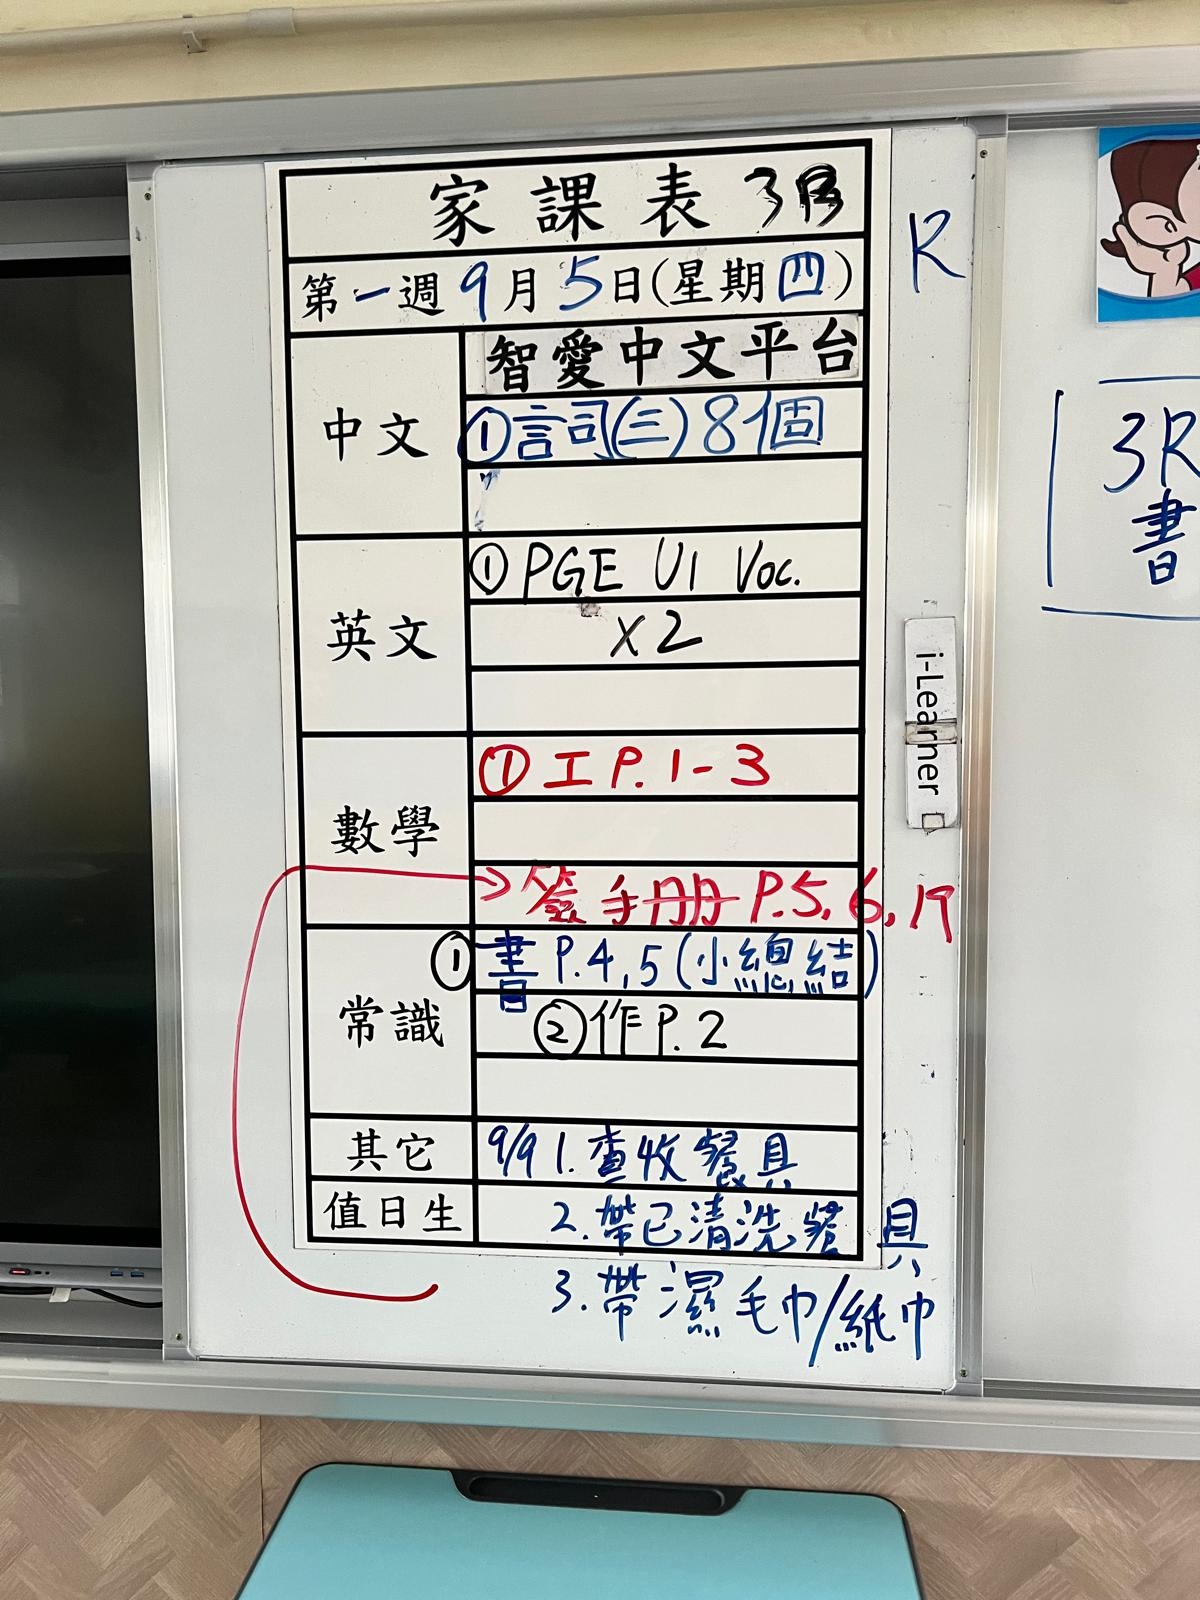 家課表 3B
R
第一週 9月5日(星期四)
中文
智愛中文平台
①詞(三)8個
英文
①PGE U1 Voc.
x2
數學
①工P.1-3
簽手冊P.5,6,19
常識
①書P.4,5(小總結)
②作P.2
其它
9/9 1.查收餐具
值日生
2.帶已清洗餐具
3.帶濕毛巾/紙巾
i-Learner
3R
書